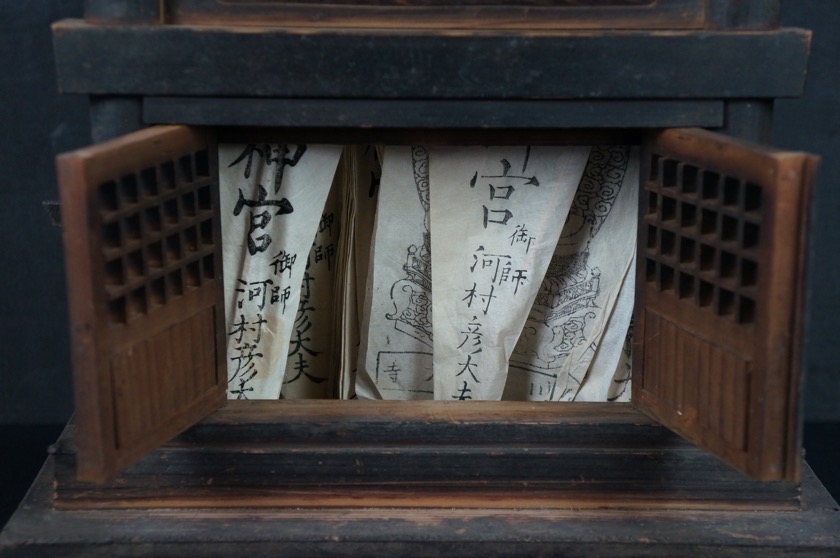 神宮
御師
河村彦大
御師
村彦大夫
宮
御師
河村彦大夫
寺
川